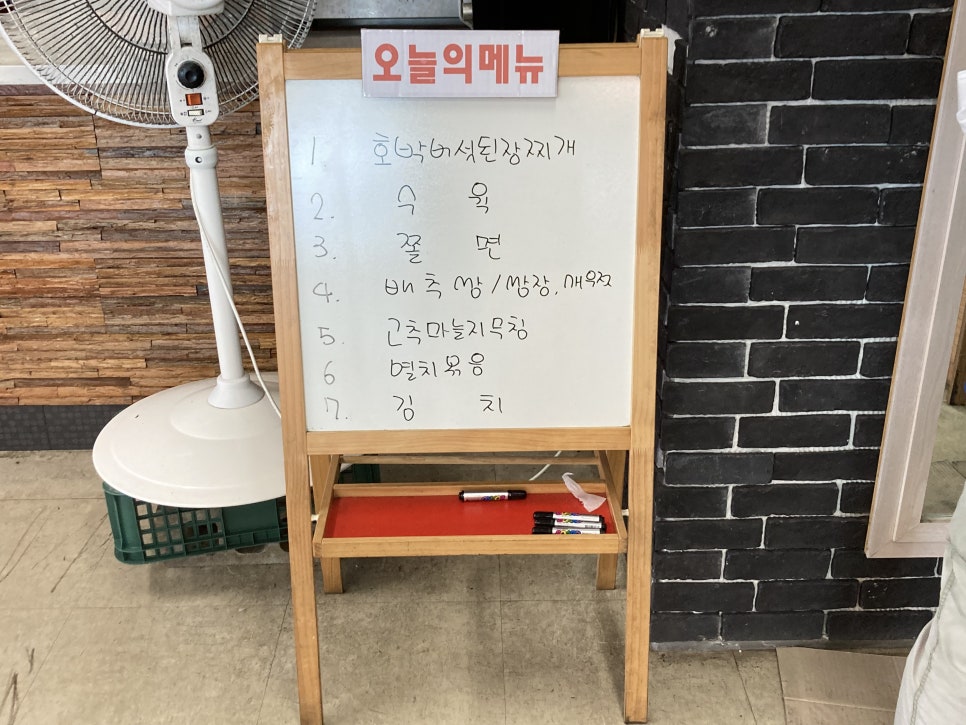 오늘의메뉴
1. 호박버섯된장찌개
2. 수 육
3. 쫄 면
4. 배추쌈/쌈장,
5. 고추마늘지무침
6 멸치볶음
7. 김 치